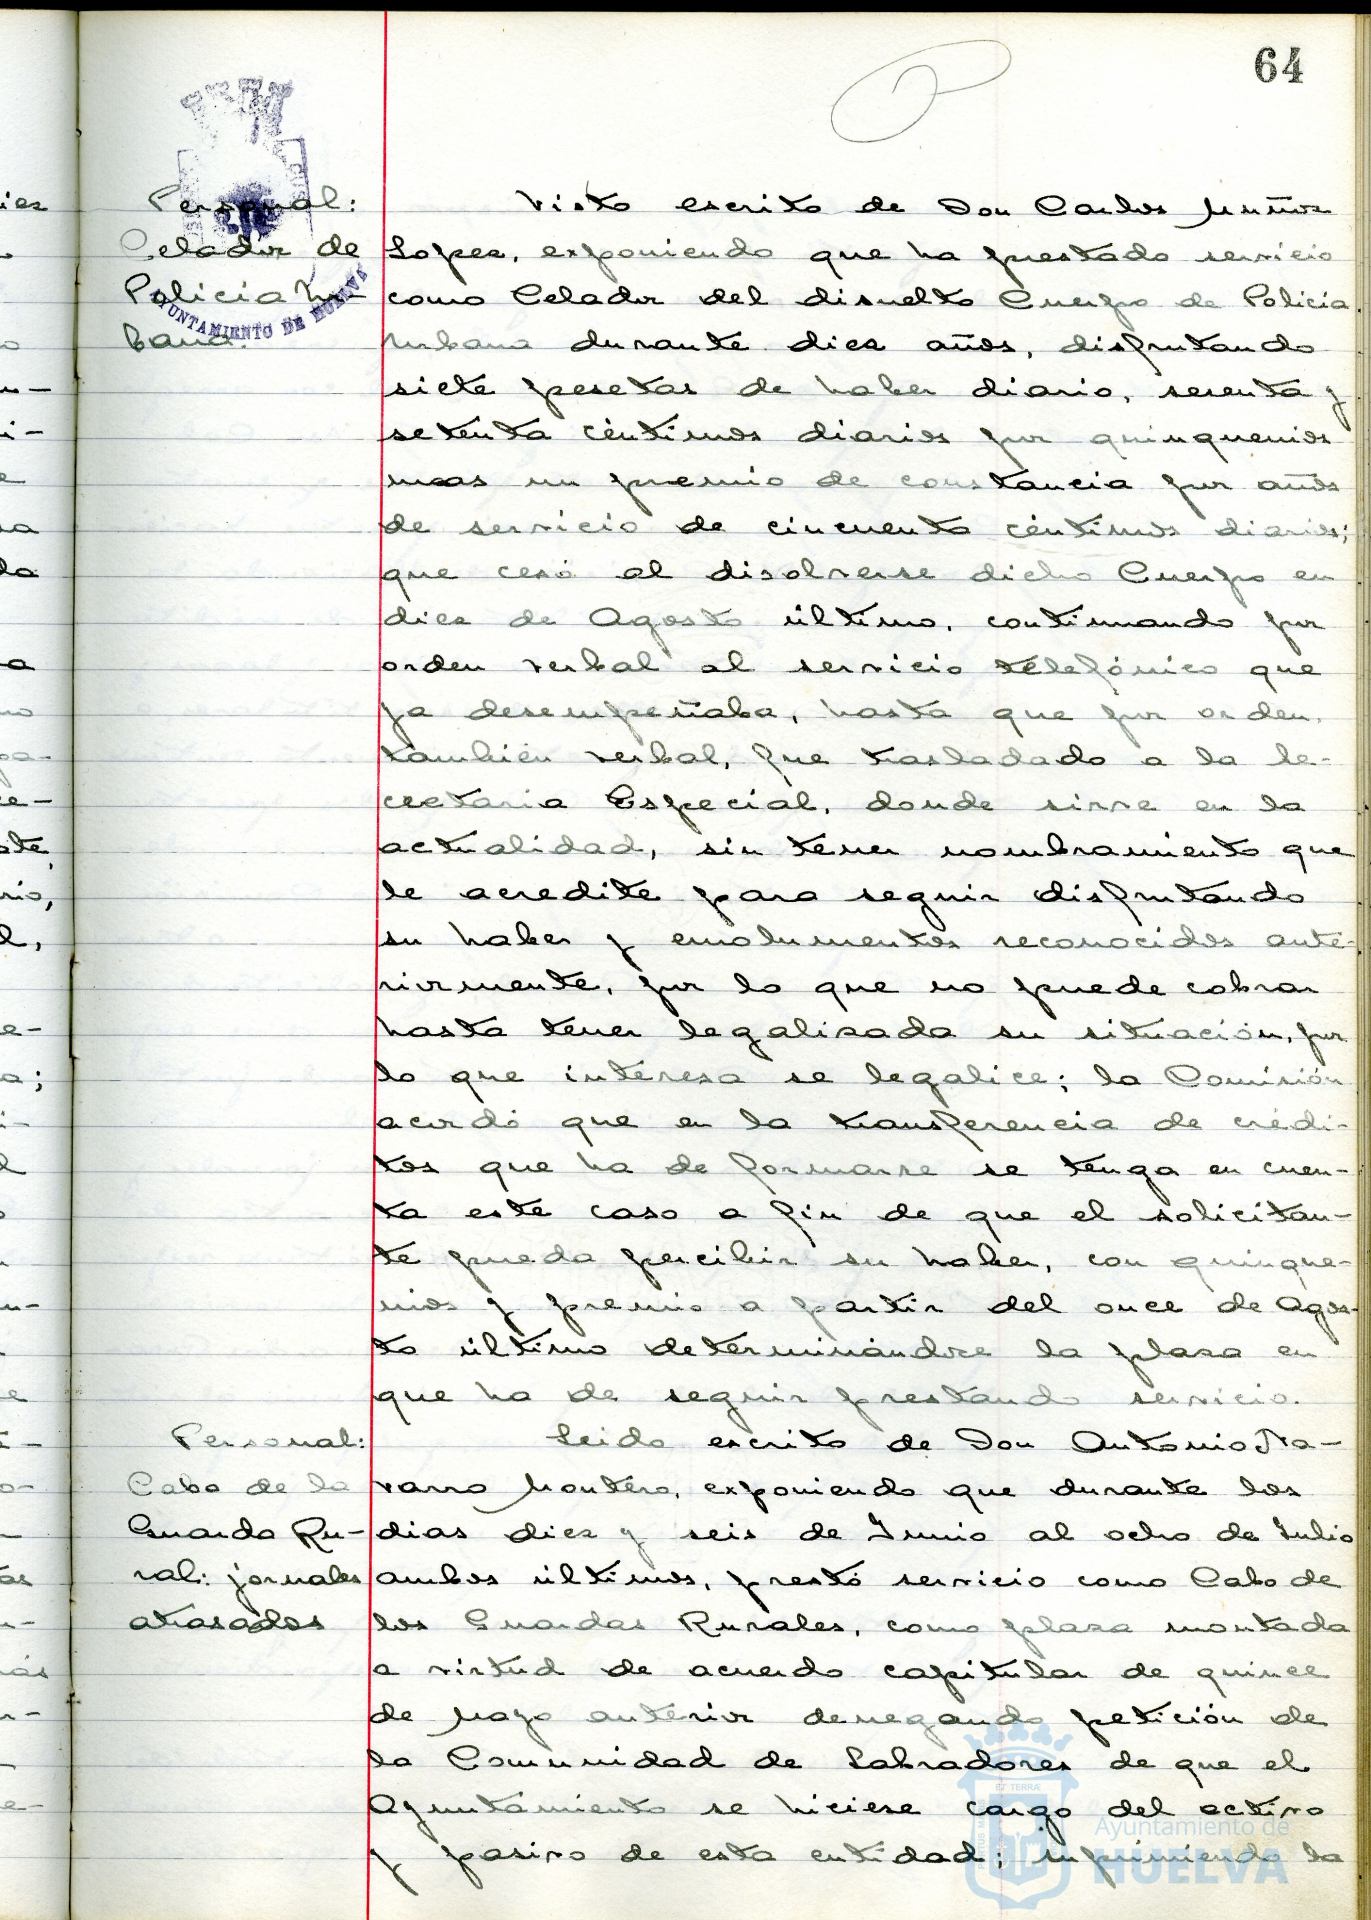 64
Personal:
Celador de
Policia Ur-
bana.
AYUNTAMIENTO DE HUELVA
Visto escrito de Don Carlos Muñoz
Lopez, exponiendo que ha prestado servicio
como Celador del disuelto Cuerpo de Policia
Urbana durante diez años, disfrutando
siete pesetas de haber diario, sesenta y
setenta céntimos diarios por quinquenios
mas un premio de constancia por años
de servicio de cincuenta céntimos diarios;
que cesó al disolverse dicho Cuerpo en
diez de Agosto último, continuando por
orden verbal al servicio telefónico que
ya desempeñaba, hasta que por orden,
también verbal, fue trasladado a la Se-
cretaria Especial, donde sirve en la
actualidad, sin tener nombramiento que
le acredite para seguir disfrutando
su haber y emolumentos reconocidos ante-
riormente, por lo que no puede cobrar
hasta tener legalizada su situación, por
lo que interesa se legalice; la Comisión
acordó que en la transferencia de crédi-
tos que ha de formarse se tenga en cuen-
ta este caso a fin de que el solicitan-
te pueda percibir su haber, con quinque-
nios y premio a partir del once de Agos-
to último determinándose la plaza en
que ha de seguir prestando servicio.
Personal:
Cabo de la
Guarda Ru-
ral: jornales
atrasados
Leido escrito de Don Antonio Na-
varro Montero, exponiendo que durante los
dias diez y seis de Junio al ocho de Julio
ambos últimos, prestó servicio como Cabo de
los Guardas Rurales, como plaza montada
a virtud de acuerdo capitular de quince
de Mayo anterior denegando petición de
la Comunidad de Labradores de que el
Ayuntamiento se hiciese cargo del activo
y pasivo de esta entidad; suprimiendo la
ET TERRÆ
Ayuntamiento de
HUELVA